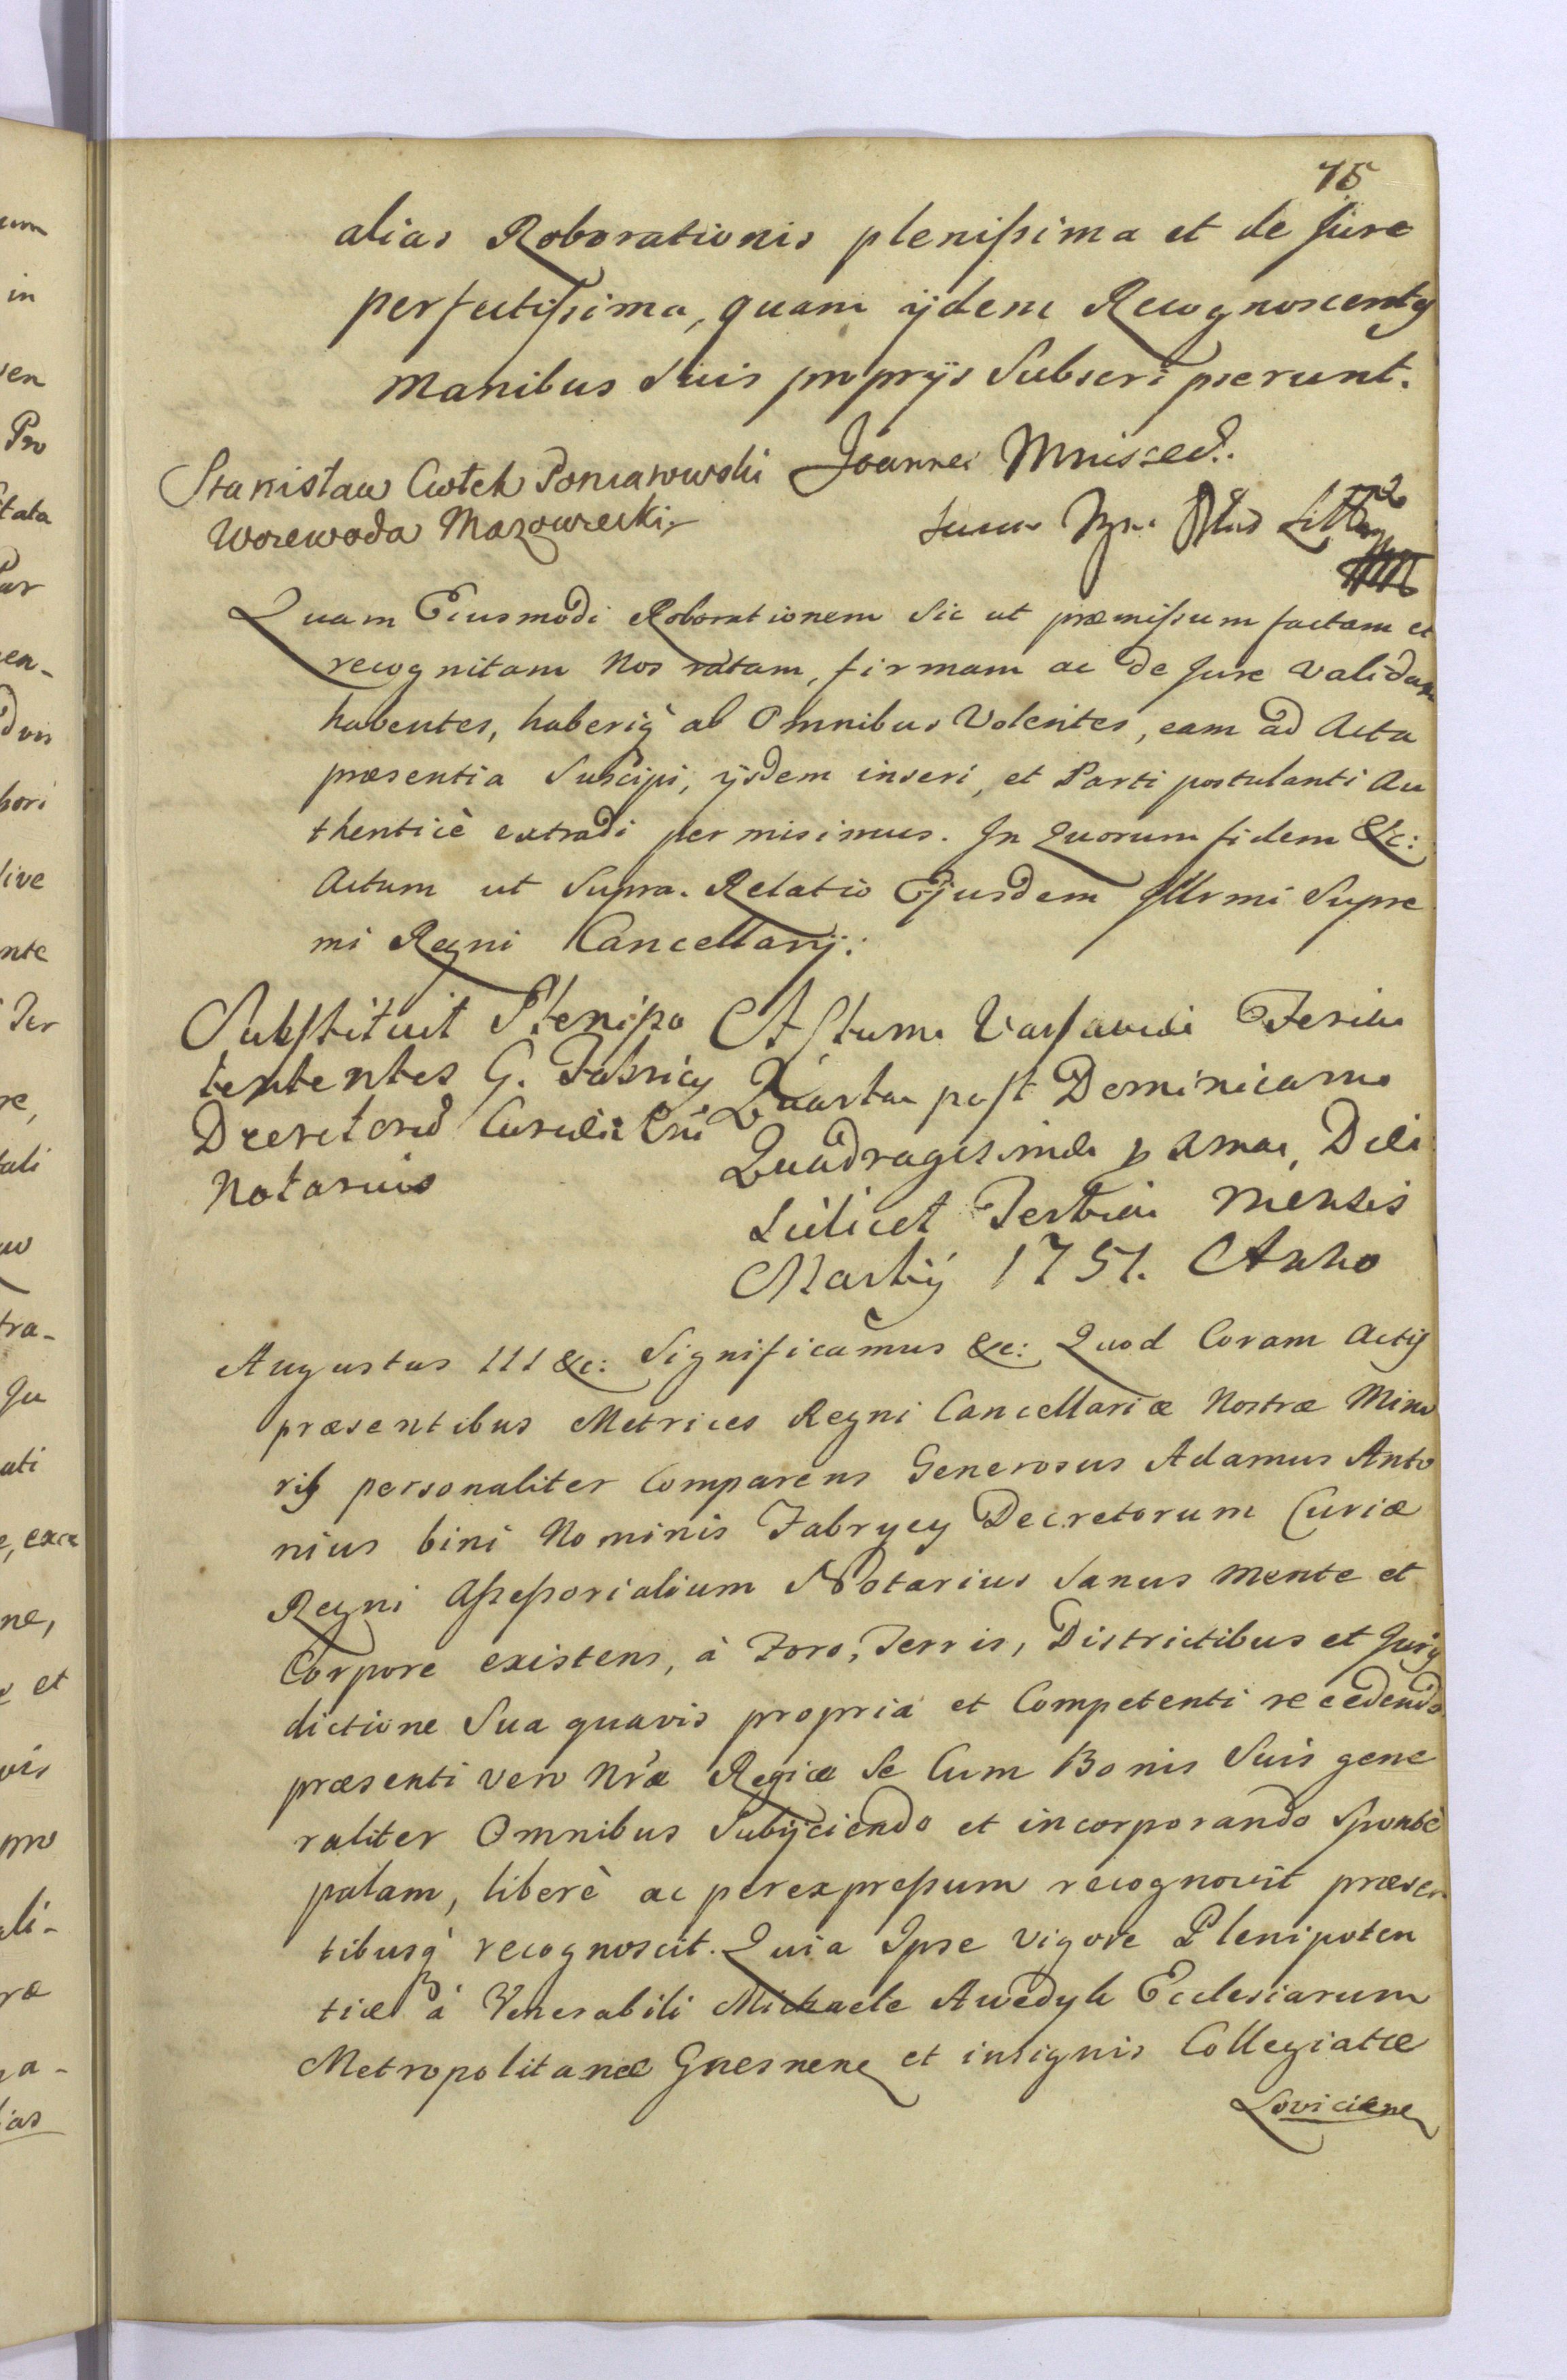 75
alias Roborationis plenissima et de Jure
perfectissima, quam ijdem Recognoscentes
Manibus Suis proprijs Subscripserunt.
Stanisław Ciołek Poniatowski
Woiewoda Mazowiecki
Joannes Mniszech.
Quam Eiusmodi Roborationem Sic ut præmissum factam et
recognitam Nos ratam, firmam ac de Jure Validam
habentes, haberiq' ab Omnibus Volentes, eam ad Acta
præsentia Suscipi, ijsdem inseri, et Parti postulanti Au
thenticè extradi permisimus. In Quorum fidem &c:
Actum ut Supra. Relatio Ejusdem Illrmi Supre
mi Regni Cancellarij.
Substituit Plenipo
tentes G. Fabricy
Decretorũ Curiæ
Notarius
Actum Varsaviæ Feria
Quarta post Dominicam
Quadragesimæ Die
Scilicet Tertia Mensis
Martij 1751. Anno
Augustus III &c: Significamus &c: Quod Coram Actis
præsentibus Metrices Regni Cancellariæ Nostræ Mino
ris personaliter Comparens Generosus Adamus Anto
nius bini Nominis Fabrycy Decretorum Curiæ
Regni Assessorialium Notarius Sanus mente et
Corpore existens, à Foro, Terris, Districtibus et Juris
dictione Sua quavis propria et Competenti recedendo
præsenti vero Nrã Regiæ Se Cum Bonis Suis gene
raliter Omnibus Subijciendo et incorporando Spontè
palam, liberè ac per expressum recognovit præsen
tibusq' recognoscit. Quia Ipse vigore Plenipoten
tiæ à Venerabili Michaele Awedyk Ecclesiarum
Metropolitanæ Gnesnens et insignis Collegiatæ
Loviciens